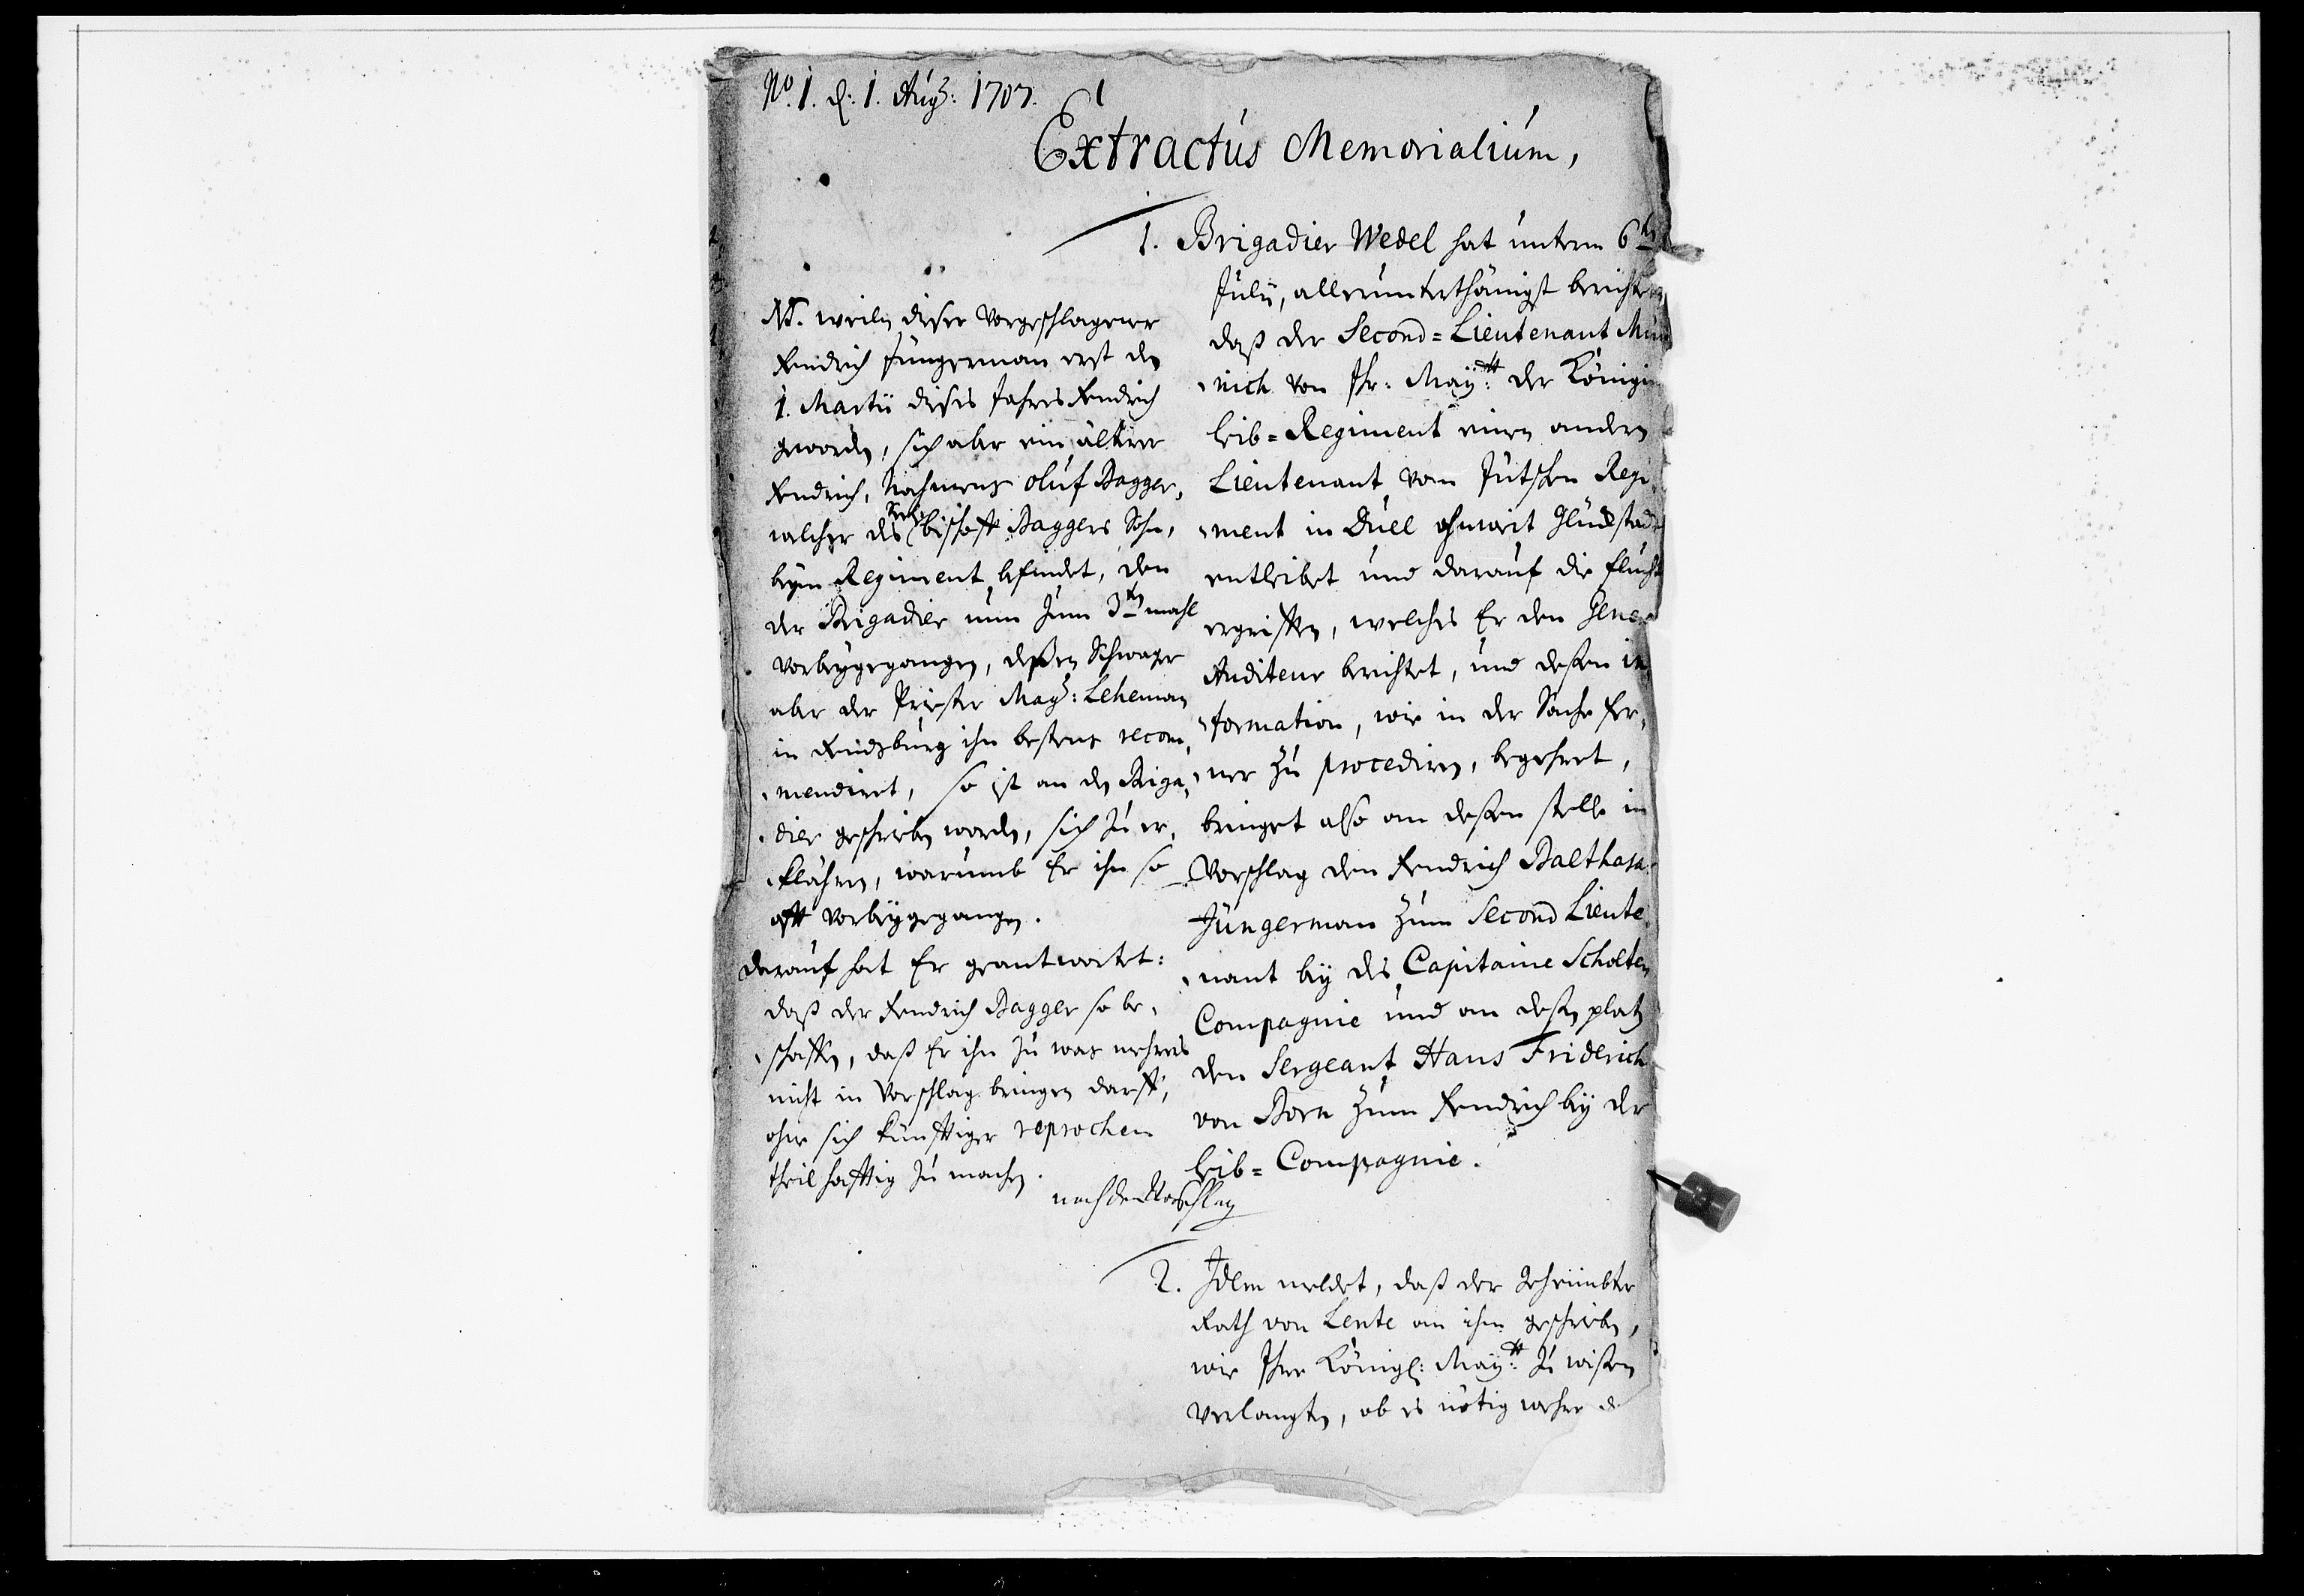 No. 1. d: 1. Aug: 1707.
1
Extractus Memorialium,
1. Brigadier Wedel hat unterm 6ten
July, allerunterthänigst berichtet,
daß der Second=Lieutenant Mün
nich von Ihr: Mayt: der Königin
leib=Regiment einen andern
Lieutenant vom Jütschen Regi
ment in Duell ohnweit Glückstadt
entleibet und darauf die flucht
ergriffen, welches Er den General
Auditeur berichtet, und deßen in
formation, wie in der Sache fer,
ner zu procediren, begehret,
bringet also an deßen stelle in
Vorschlag den Fendrich Balthasar
Jüngerman zum Second Lieute
nant bey des Capitaine Scholten
Compagnie und an deßen platz
den Sergeant Hans Friderich
von Born zum Fendrich bey der
leib=Compagnie.
NB. weiln dieser Vorgeschlagener
Fendrich Jüngerman erst den
1. Martii dieses Jahres Fendrich
geworden, sich aber ein älterer
Fendrich, Nahmens Oluf Bagger,
welcher des bischoff Baggers Sohn,
beym Regiment befindet, den
der Brigadier nun zum 3ten mahl
vorbeygegangen, deßen Schwager
aber der Priester Mag: Leheman
in Rendsburg ihn bestens recom,
mendiret, so ist an den Briga,
dier geschrieben worden, sich zu er,
klähren, warumb Er ihn so
offt vorbeygegangen.
darauf hat Er geantwortet:
daß der Fendrich Bagger so be,
schaffen, daß Er ihn zu was mehres
nicht in Vorschlag bringen darff,
ohne sich künfftiger reprochen
theilhafftig zu machen.
nach den Vorschlag
2. Idem meldet, daß der Geheimbter
Rath von Lente an ihm geschrieben,
wie Ihre Königl: Mayt: zu wißen
verlangten, ob es nötig wehre